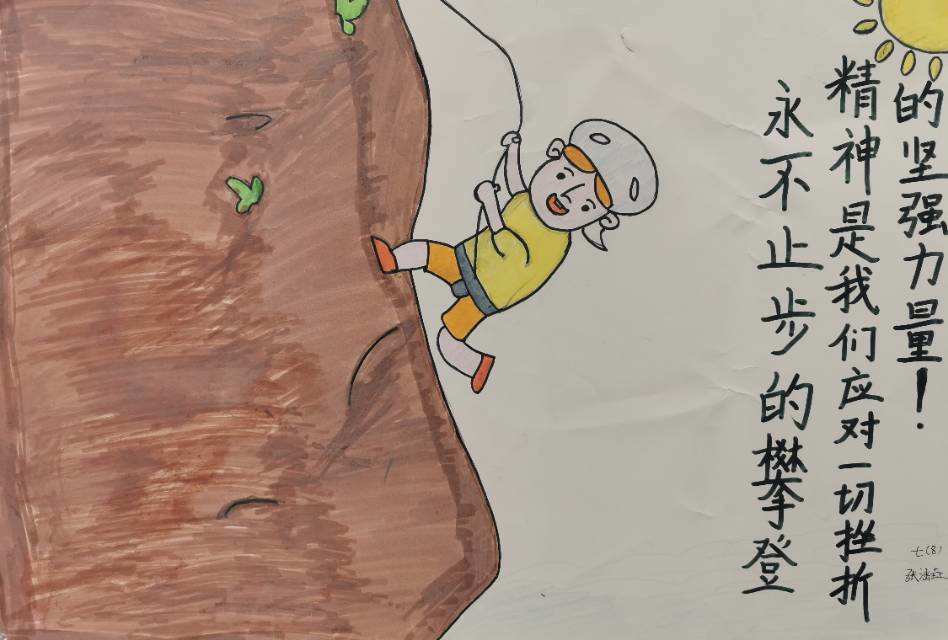 永不止步的攀登
精神是我们应对一切挫折
的坚强力量！
七(8)
张